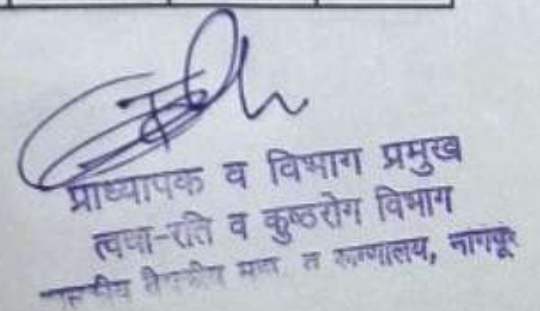 प्राध्यापक व विभाग प्रमुख
त्वचा-रति व कुष्ठरोग विभाग
रुग्णालय, नागपूर